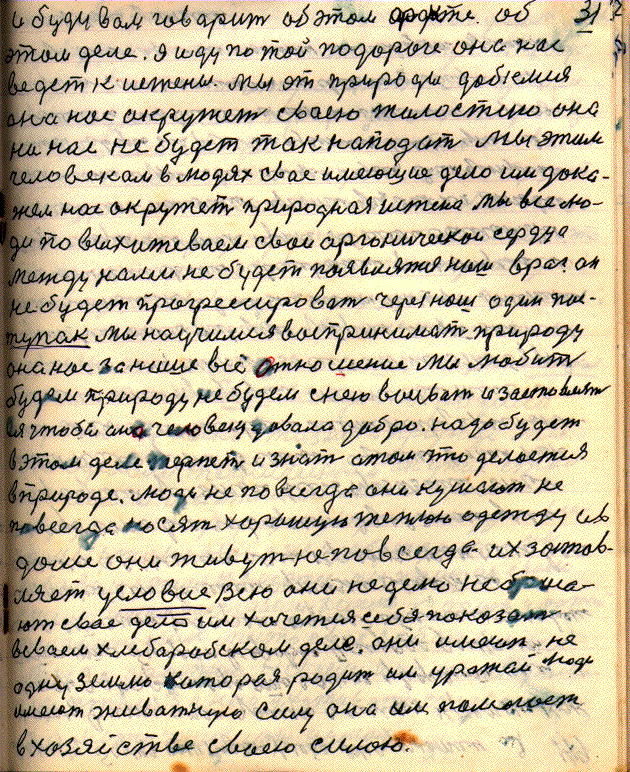 и буду вам говарит об этом факте. об 31
этом деле. я иду по той подороге она нас
ведет к истены. мы эт природы добюмся
она нас окружет сваею жалостию она
на нас не будет так нападат мы этим
человекам в людях свае имеющие дело им дока-
жем нас окружет природная истена мы все лю-
ди по выхитеваем сваи органическаи сердца
между нами не будет появлятся наш враг. он
не будет прогрессироват через наш один пос-
тупак мы научимся воспринимат природу
она нас за наше всё отношение мы любит
будем природу не будем с нею воиват и заставлят
ея чтобы она человеку довала добро. надо будет
в этом деле терпет и знат отом что делается
в природе. люди не повсегда они кушают не
повсегда носят харошую теплою одежду и в
доме они живут неповсегда их застав-
ляет условие Всю они неделю не броса-
ют свае дело им хочется себя показат
всваем хлебаробском деле. они имеют не
одну землю которая родит им урожай люди
имеют животную силу она им помогает
в хозяйстве сваею силою.